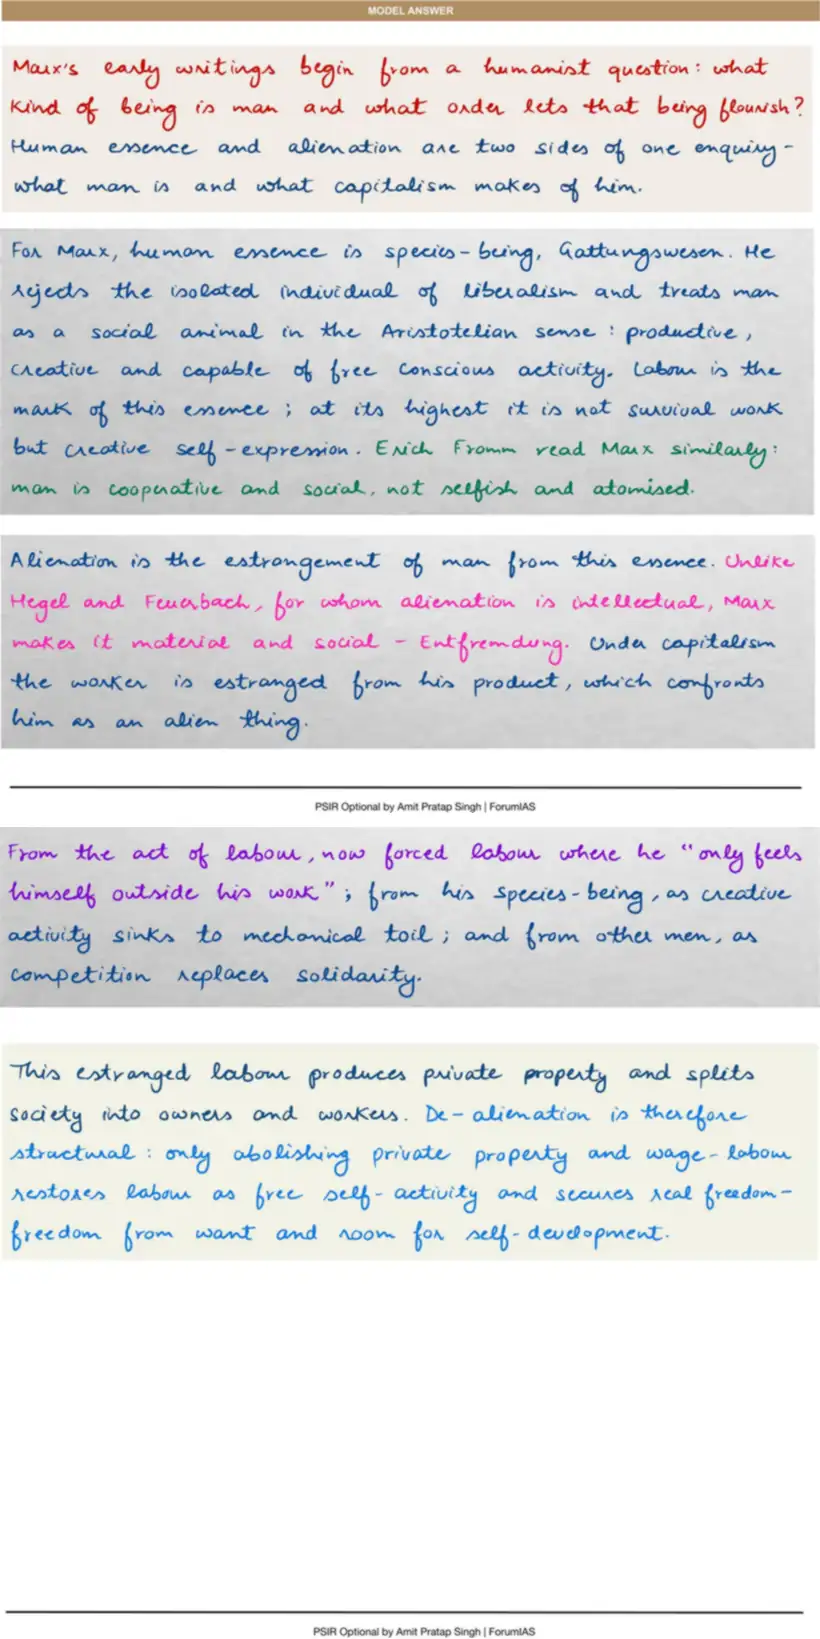 MODEL ANSWER
Marx's early writings begin from a humanist question: what
kind of being is man and what order lets that being flourish?
Human essence and alienation are two sides of one enquiry -
what man is and what capitalism makes of him.
For Marx, human essence is species-being, Gattungswesen. He
rejects the isolated individual of liberalism and treats man
as a social animal in the Aristotelian sense: productive,
creative and capable of free conscious activity. Labour is the
mark of this essence; at its highest it is not survival work
but creative self-expression. Erich Fromm read Marx similarly:
man is cooperative and social, not selfish and atomised.
Alienation is the estrangement of man from this essence. Unlike
Hegel and Feuerbach, for whom alienation is intellectual, Marx
makes it material and social - Entfremdung. Under capitalism
the worker is estranged from his product, which confronts
him as an alien thing.
PSIR Optional by Amit Pratap Singh | ForumIAS
From the act of labour, now forced labour where he "only feels
himself outside his work"; from his species-being, as creative
activity sinks to mechanical toil; and from other men, as
competition replaces solidarity.
This estranged labour produces private property and splits
society into owners and workers. De-alienation is therefore
structural: only abolishing private property and wage-labour
restores labour as free self-activity and secures real freedom-
freedom from want and room for self-development.
PSIR Optional by Amit Pratap Singh | ForumIAS